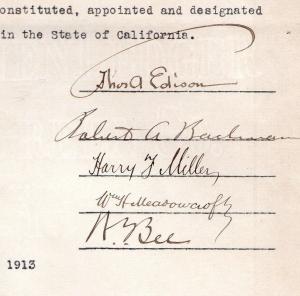 onstituted, appointed and designated
in the State of California.
Thos A Edison
Robert A Bachman
Harry F Miller
Wm H Meadowcroft
N. Y. Bee
1913